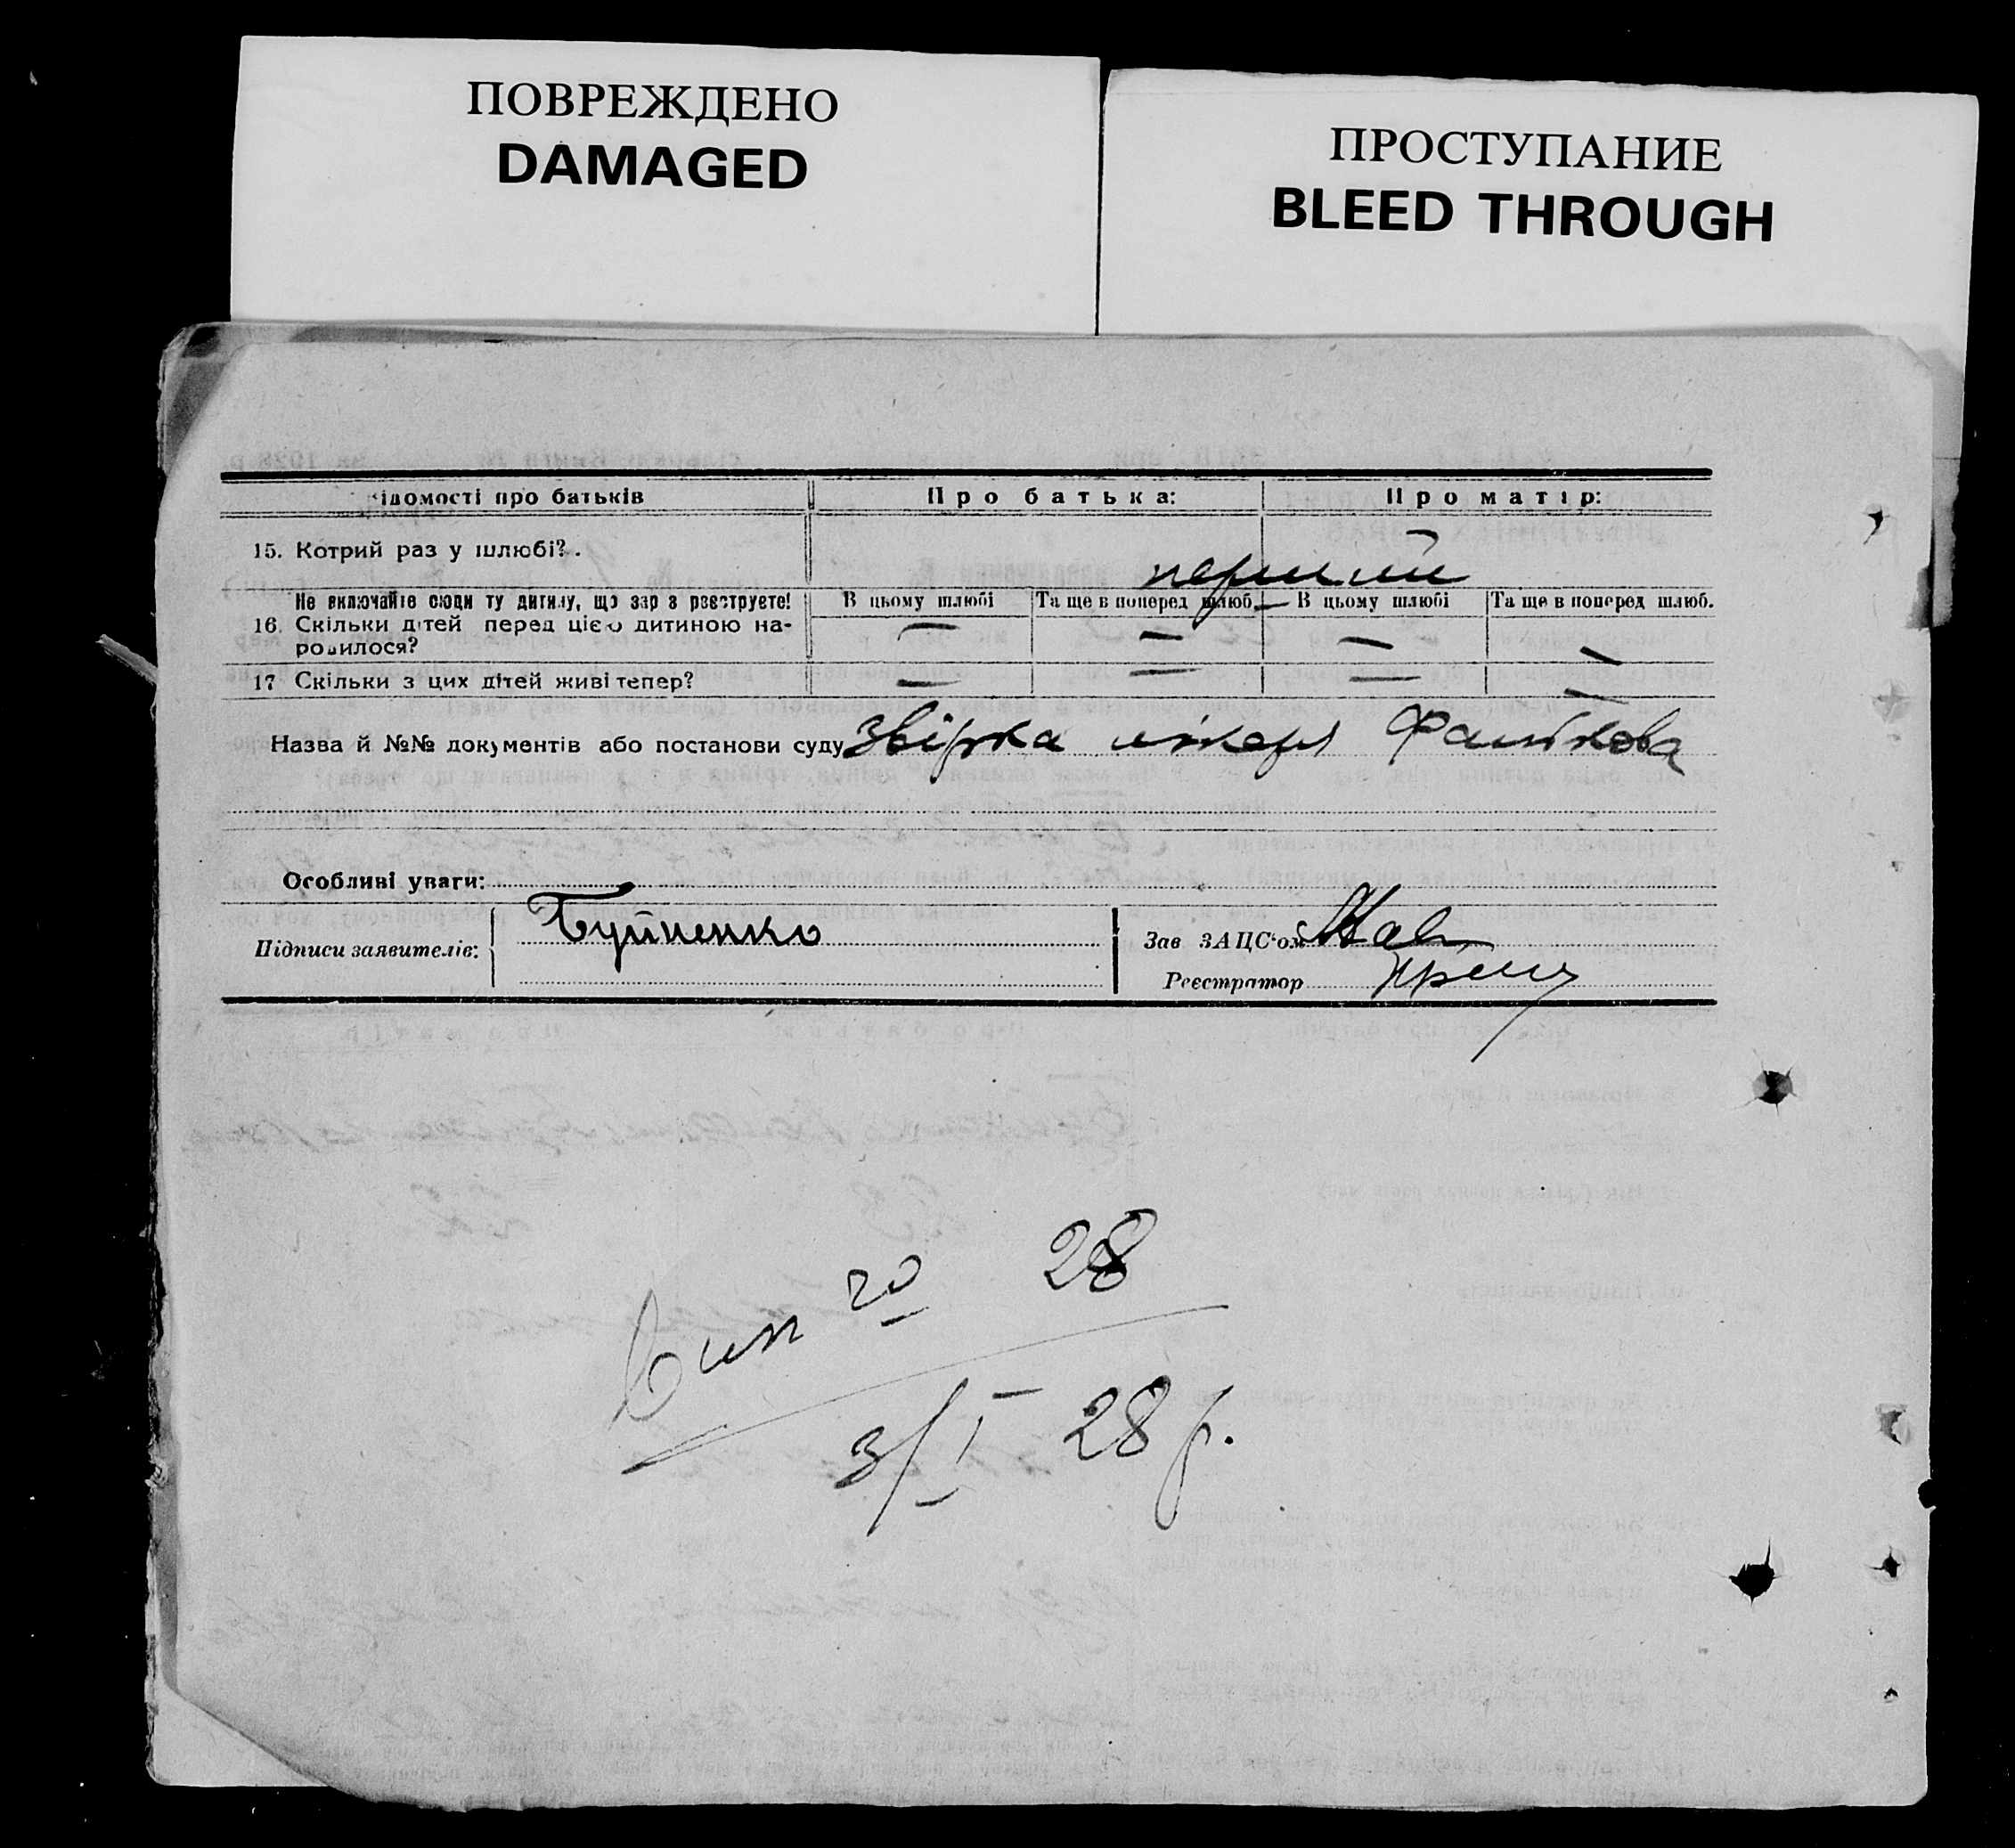 ПОВРЕЖДЕНО
DAMAGED
ПРОСТУПАНИЕ
BLEED THROUGH
ідомості про батьків
Про батька:
Про матір:
15. Котрий раз у шлюбі?.
перший
Не включайте сюди ту дитину, що зараз реєструєте!
В цьому шлюбі
Та ще в поперед шлюб.
В цьому шлюбі
Та ще в поперед шлюб.
16. Скільки дітей перед цією дитиною на-
родилося?
— — — —
17 Скільки з цих дітей живі тепер?
— — — —
Назва й №№ документів або постанови суду Звірка лікаря
Особливі уваги:
Підписи заявителів:
Зав ЗАЦС'ом
Реєстратор
Вип 20 28
3/I 28 р.